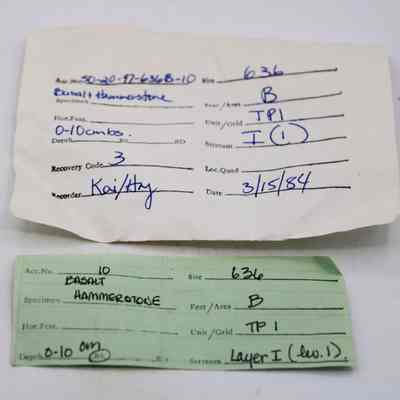 Acc.No. 50-20-17-636B-10 Site 636
Basalt Hammerstone
Specimen Feat/Area B
Hor.Prov. Unit/Grid TP1
0-10cmbs.
Depth BS BD Stratum I (1)
Recovery Code 3 Loc.Quad
Recorder Kai/Hy Date 3/15/84
Acc.No. 10 Site 636
BASALT
Specimen HAMMERSTONE Feat/Area B
Hor.Prov. Unit/Grid TP 1
Depth 0-10 cm BS BD Stratum Layer I (lev. 1).